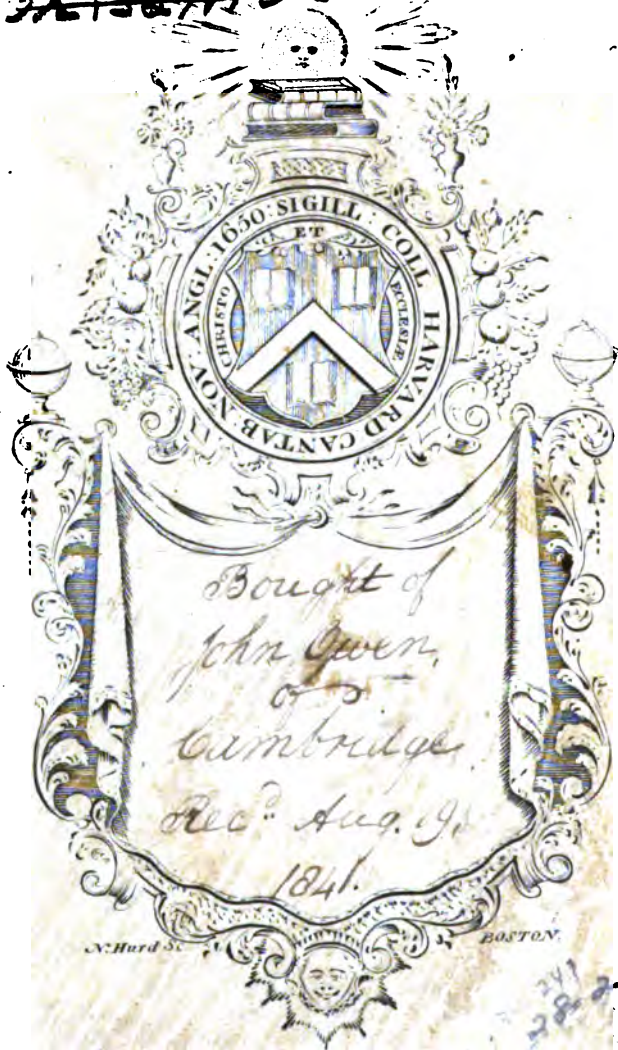 SIGILL : COLL HARVARD CANTAB : NOV : ANGL : 1650 :
ET
CHRISTO
ECCLESIÆ
Bought of
John Owen,
of
Cambridge.
Rec.d Aug. 9.
1841.
N. Hurd Sc.
BOSTON.